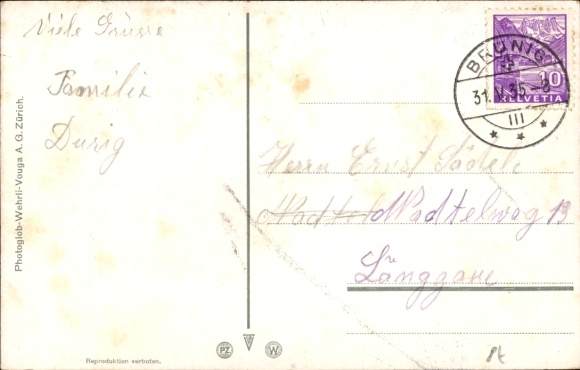 Viele Grüsse
Familie
Durig
Photoglob-Wehrli-Vouga A.G. Zürich.
Reproduktion verboten.
BRÜNIG
31.V.35.-8
III
10
HELVETIA
Herrn Ernst
Wadtelweg 13
PZ
W